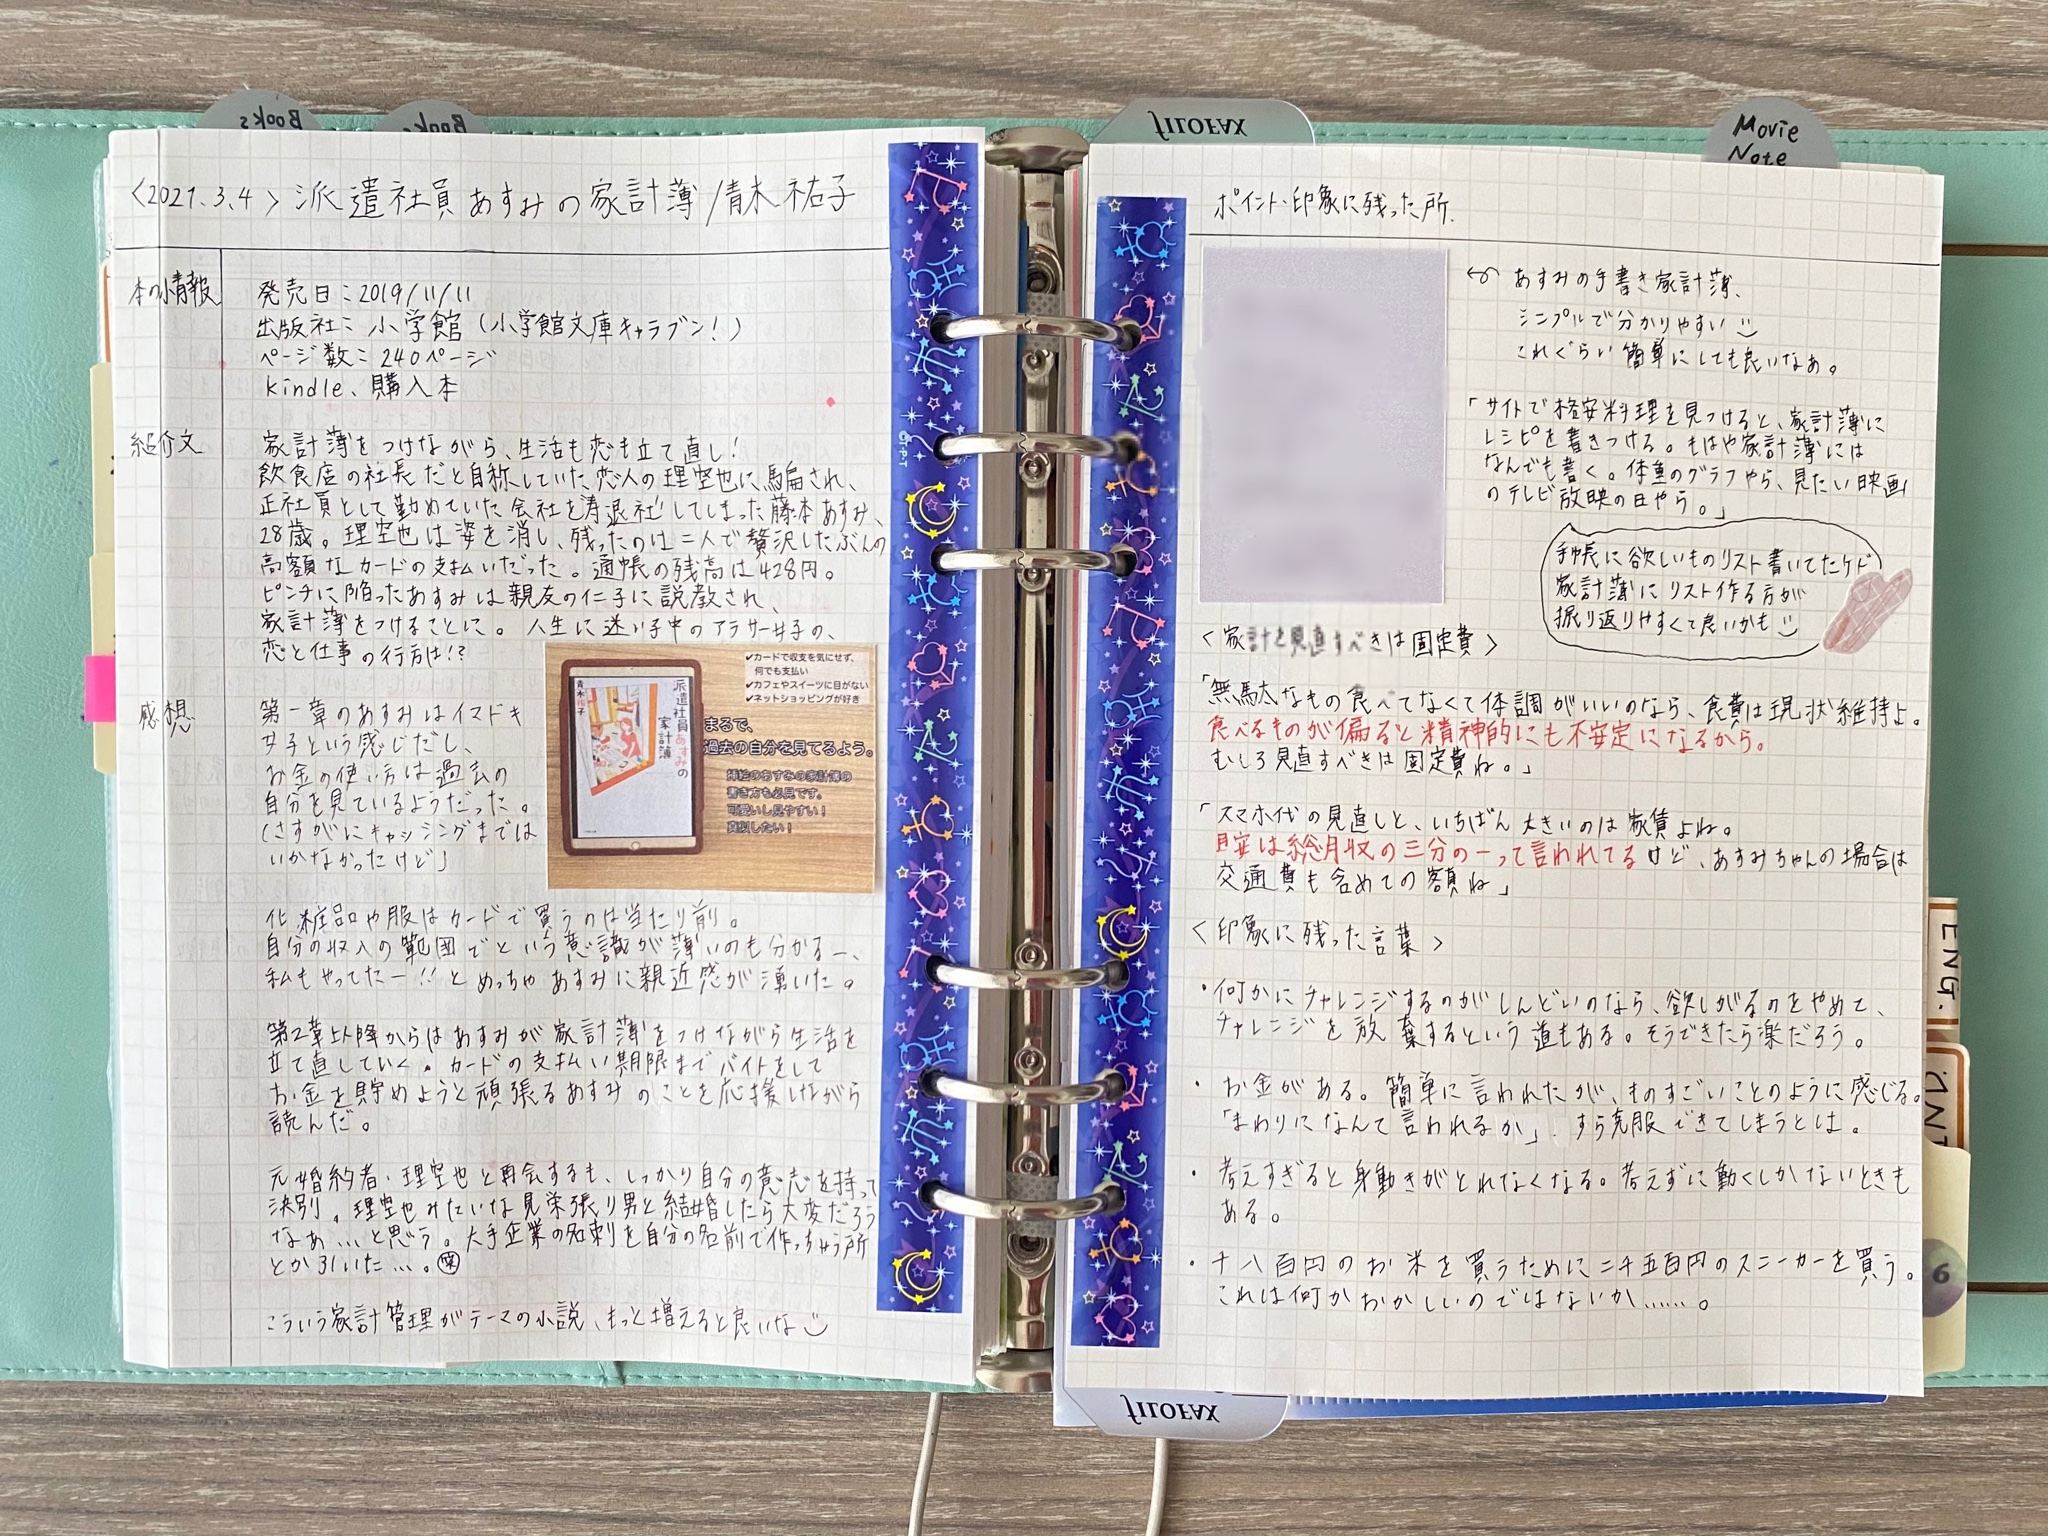 Books
Books
<2021.3.4> 派遣社員あすみの家計簿/青木祐子
本の情報
発売日:2019/11/11
出版社:小学館(小学館文庫キャラブン!)
ページ数:240ページ
kindle、購入本
紹介文
家計簿をつけながら、生活も恋も立て直し!
飲食店の社長だと自称していた恋人の理空也に騙され、
正社員として勤めていた会社を寿退社してしまった藤本あすみ、
28歳。理空也は姿を消し、残ったのは二人で贅沢したぶんの
高額なカードの支払いだった。通帳の残高は428円。
ピンチに陥ったあすみは親友の仁子に説教され、
家計簿をつけることに。人生に迷い子中のアラサー女子の、
恋と仕事の行方は!?
感想
第一章のあすみはイマドキ
女子という感じだし、
お金の使い方は過去の
自分を見ているようだった。
(さすがにキャッシングまでは
いかなかったけど」
派遣社員あすみの
家計簿
青木祐子
✔カードで収支を気にせず、
何でも支払い
✔カフェやスイーツに目がない
✔ネットショッピングが好き
まるで、
過去の自分を見てるよう。
挿絵のあすみの家計簿の
書き方も必見です。
可愛いし見やすい!
真似したい!
化粧品や服はカードで買うのは当たり前。
自分の収入の範囲でという意識が薄いのも分かるー、
私もやってたー!!とめっちゃあすみに親近感が湧いた。
第2章以降からはあすみが家計簿をつけながら生活を
立て直していく。カードの支払い期限までバイトをして
お金を貯めようと頑張るあすみのことを応援しながら
読んだ。
元婚約者・理空也と再会するも、しっかり自分の意志を持って
決別。理空也みたいな見栄張り男と結婚したら大変だろう
なぁ…と思う。大手企業の名刺を自分の名前で作っちゃう所
とか引いた…。笑
こういう家計管理がテーマの小説、もっと増えると良いな
filofax
Movie
Note
ポイント・印象に残った所.
あすみの手書き家計簿、
シンプルで分かりやすい
これぐらい簡単にしても良いなあ。
「サイトで格安料理を見つけると、家計簿に
レシピを書きつける。もはや家計簿には
なんでも書く。体重のグラフやら、見たい映画
のテレビ放映の日やら。」
手帳に欲しいものリスト書いてたケド
家計簿にリスト作る方が
振り返りやすくて良いかも
<家計を見直すべきは固定費>
「無駄なもの食べてなくて体調がいいのなら、食費は現状維持よ。
食べるものが偏ると精神的にも不安定になるから。
むしろ見直すべきは固定費ね。」
「スマホ代の見直しと、いちばん大きいのは家賃よね。
目安は総月収の三分の一って言われてるけど、あすみちゃんの場合は
交通費も含めての額ね」
<印象に残った言葉>
・何かにチャレンジするのがしんどいのなら、欲しがるのをやめて、
チャレンジを放棄するという道もある。そうできたら楽だろう。
・お金がある。簡単に言われたが、ものすごいことのように感じる。
「まわりになんて言われるか」、すら克服できてしまうとは。
・考えすぎると身動きがとれなくなる。考えずに動くしかないときも
ある。
・千八百円のお米を買うために二千五百円のスニーカーを買う。
これは何かおかしいのではないか……。
ENG.
INT
6
filofax